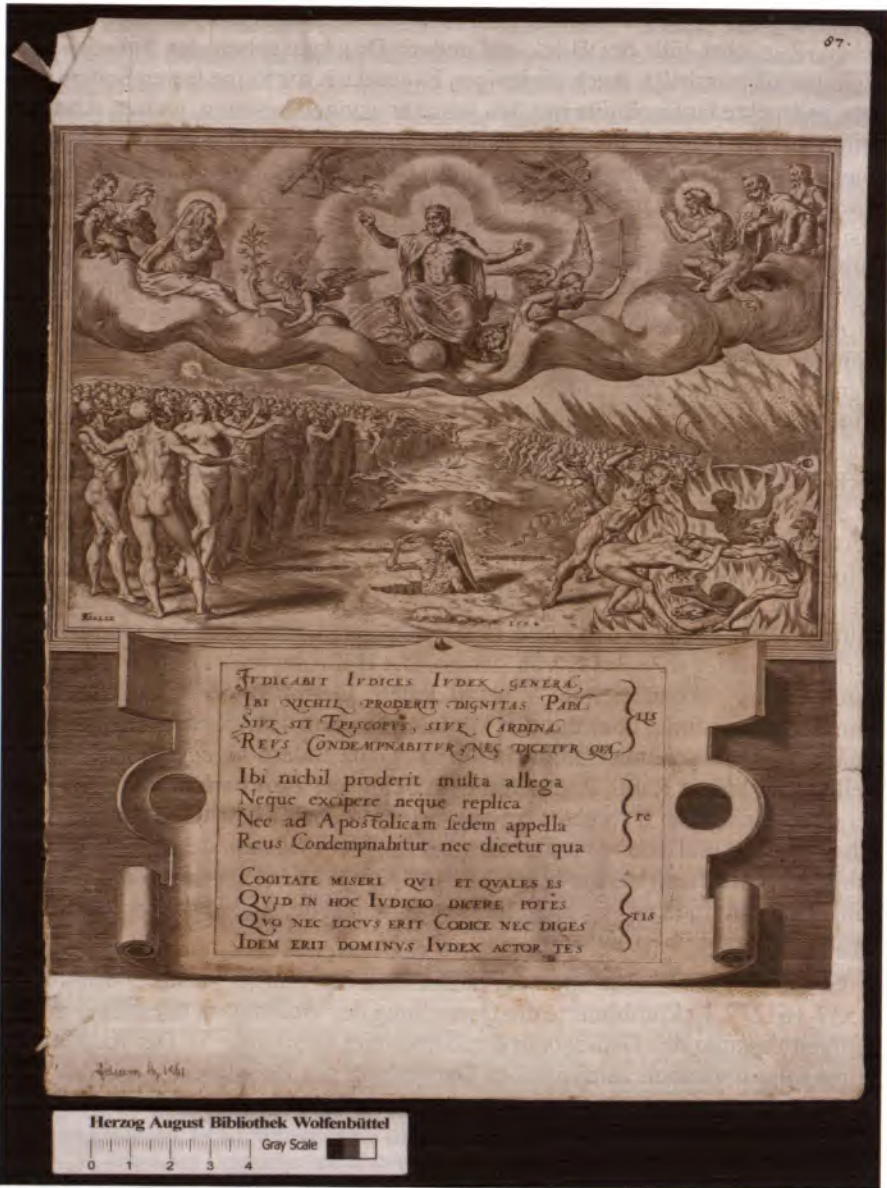 87.
JVDICABIT IVDICES IVDEX GENERA,
IBI NICHIL PRODERIT DIGNITAS PAPA
SIVE SIT EPISCOPVS, SIVE CARDINA
REVS CONDEMPNABITVR, NEC DICETVR QVA
LIS
Ibi nichil proderit multa allega
Neque excipere neque replica
Nec ad Apostolicam sedem appella
Reus Condempnabitur nec dicetur qua
re
COGITATE MISERI QVI ET QVALES ES
QVID IN HOC IVDICIO DICERE POTES
QVO NEC LOCVS ERIT CODICE NEC DIGES
IDEM ERIT DOMINVS IVDEX ACTOR TES
TIS
Herzog August Bibliothek Wolfenbüttel
Gray Scale
0 1 2 3 4